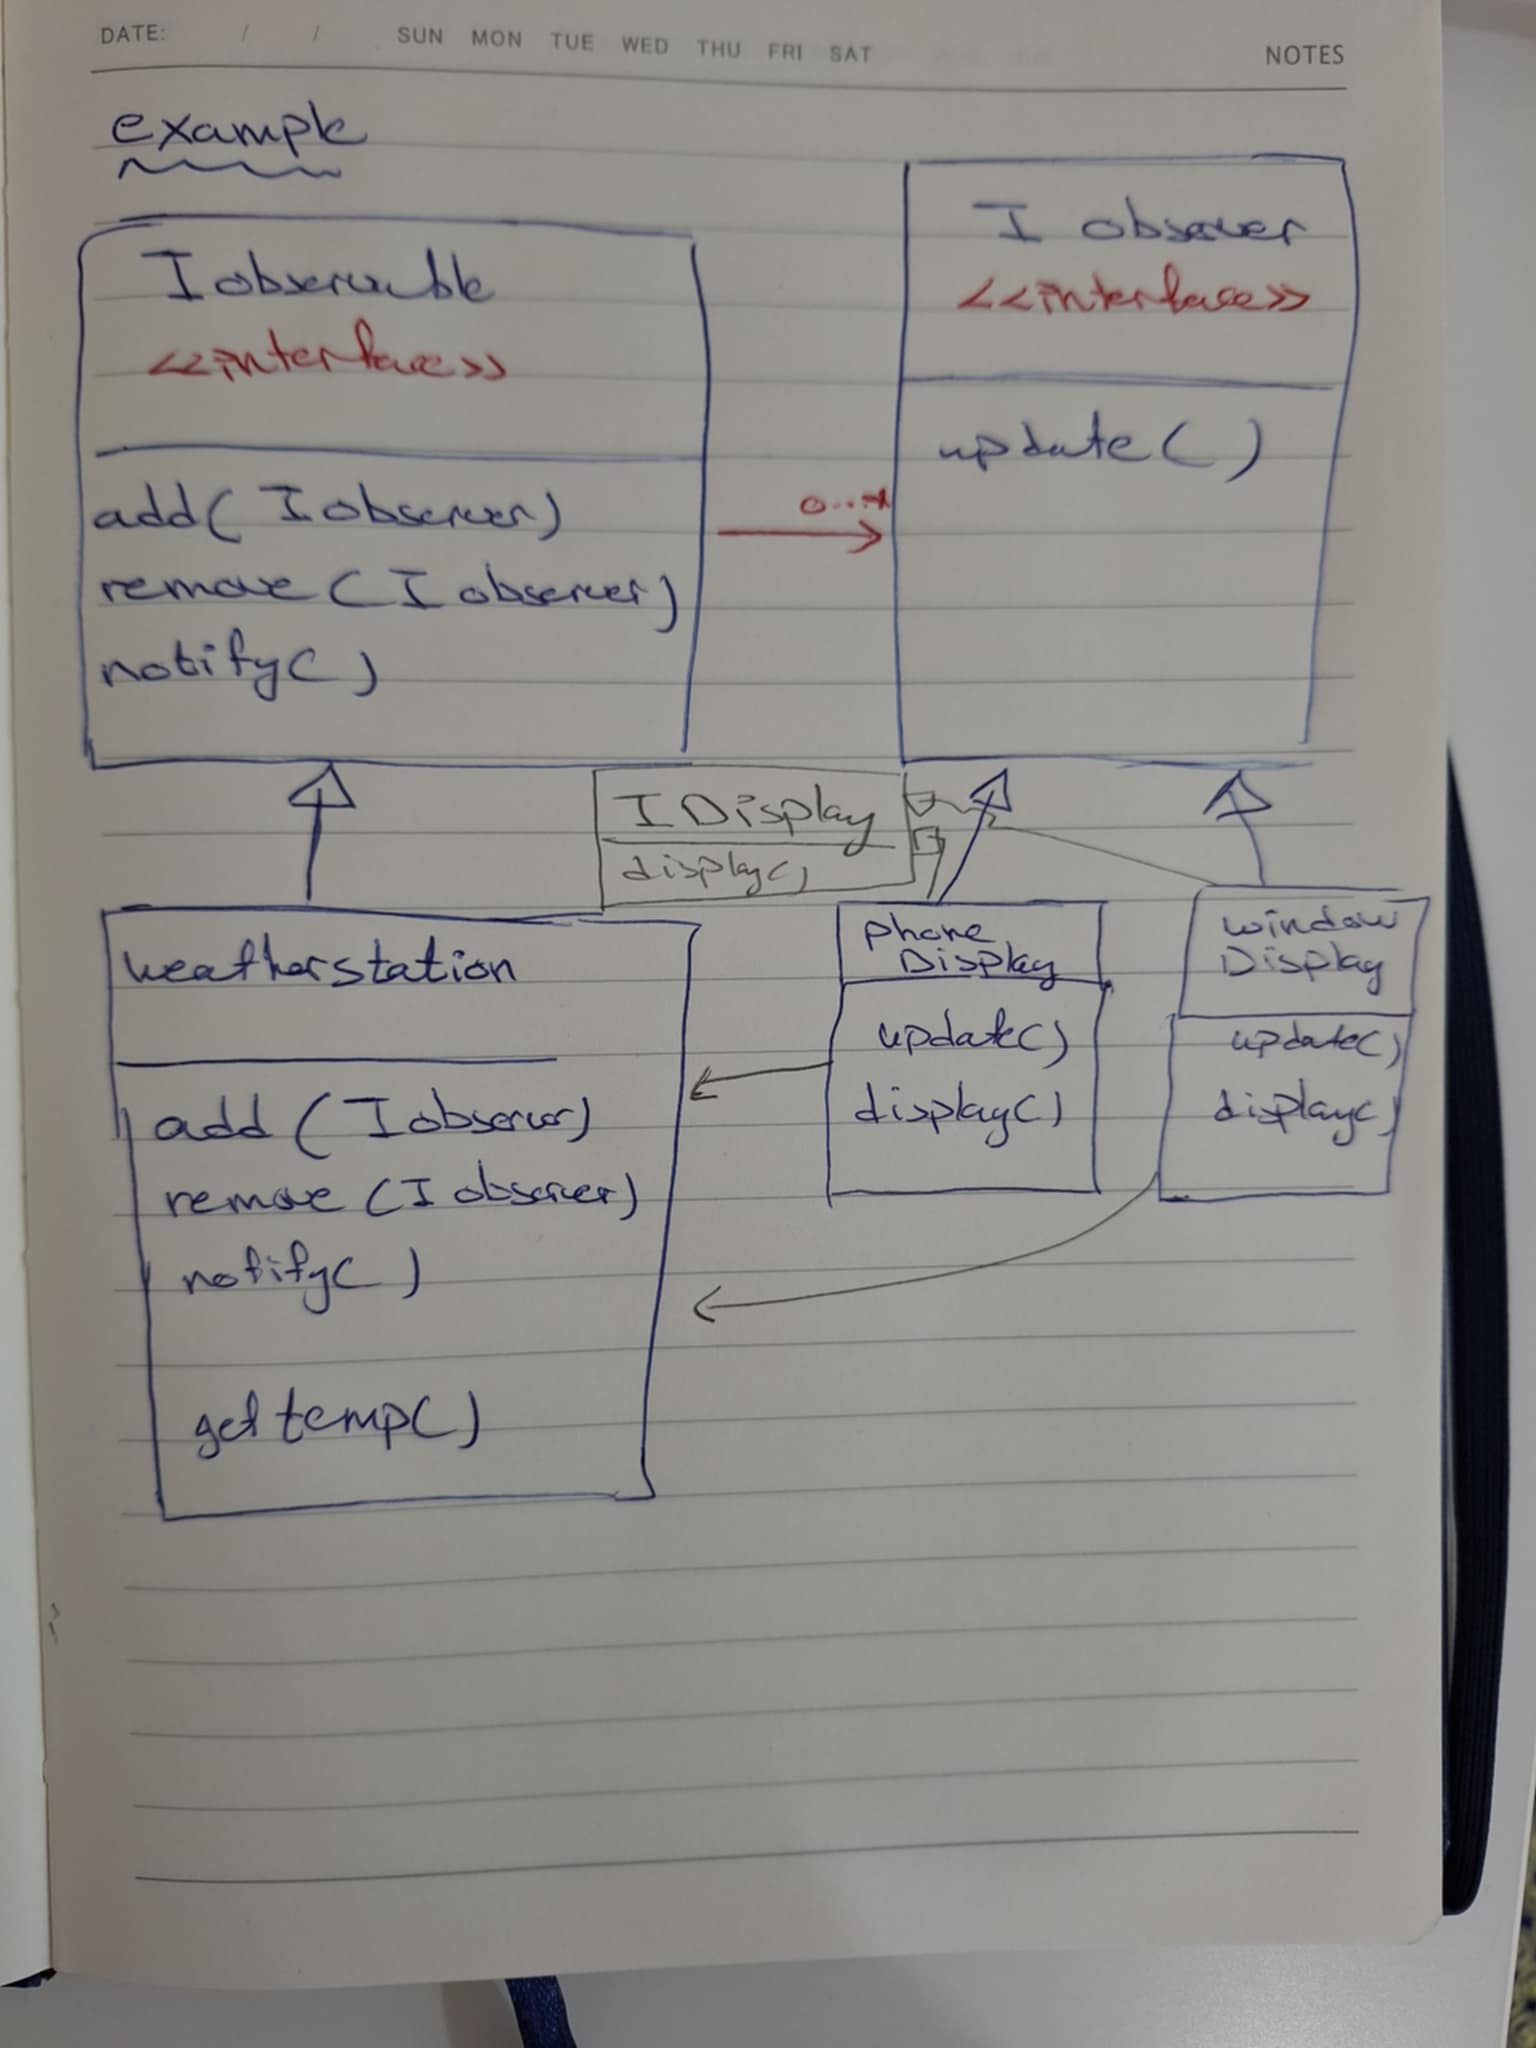 DATE: / / SUN MON TUE WED THU FRI SAT NOTES
example
Iobservable
<<interface>>
add( Iobserver)
remove (Iobserver)
notify( )
0...*
I observer
<<interface>>
update( )
IDisplay
display()
weatherstation
add (Iobserver)
remove (Iobserver)
notify( )
get temp( )
phone
Display
update()
display()
window
Display
update()
display()